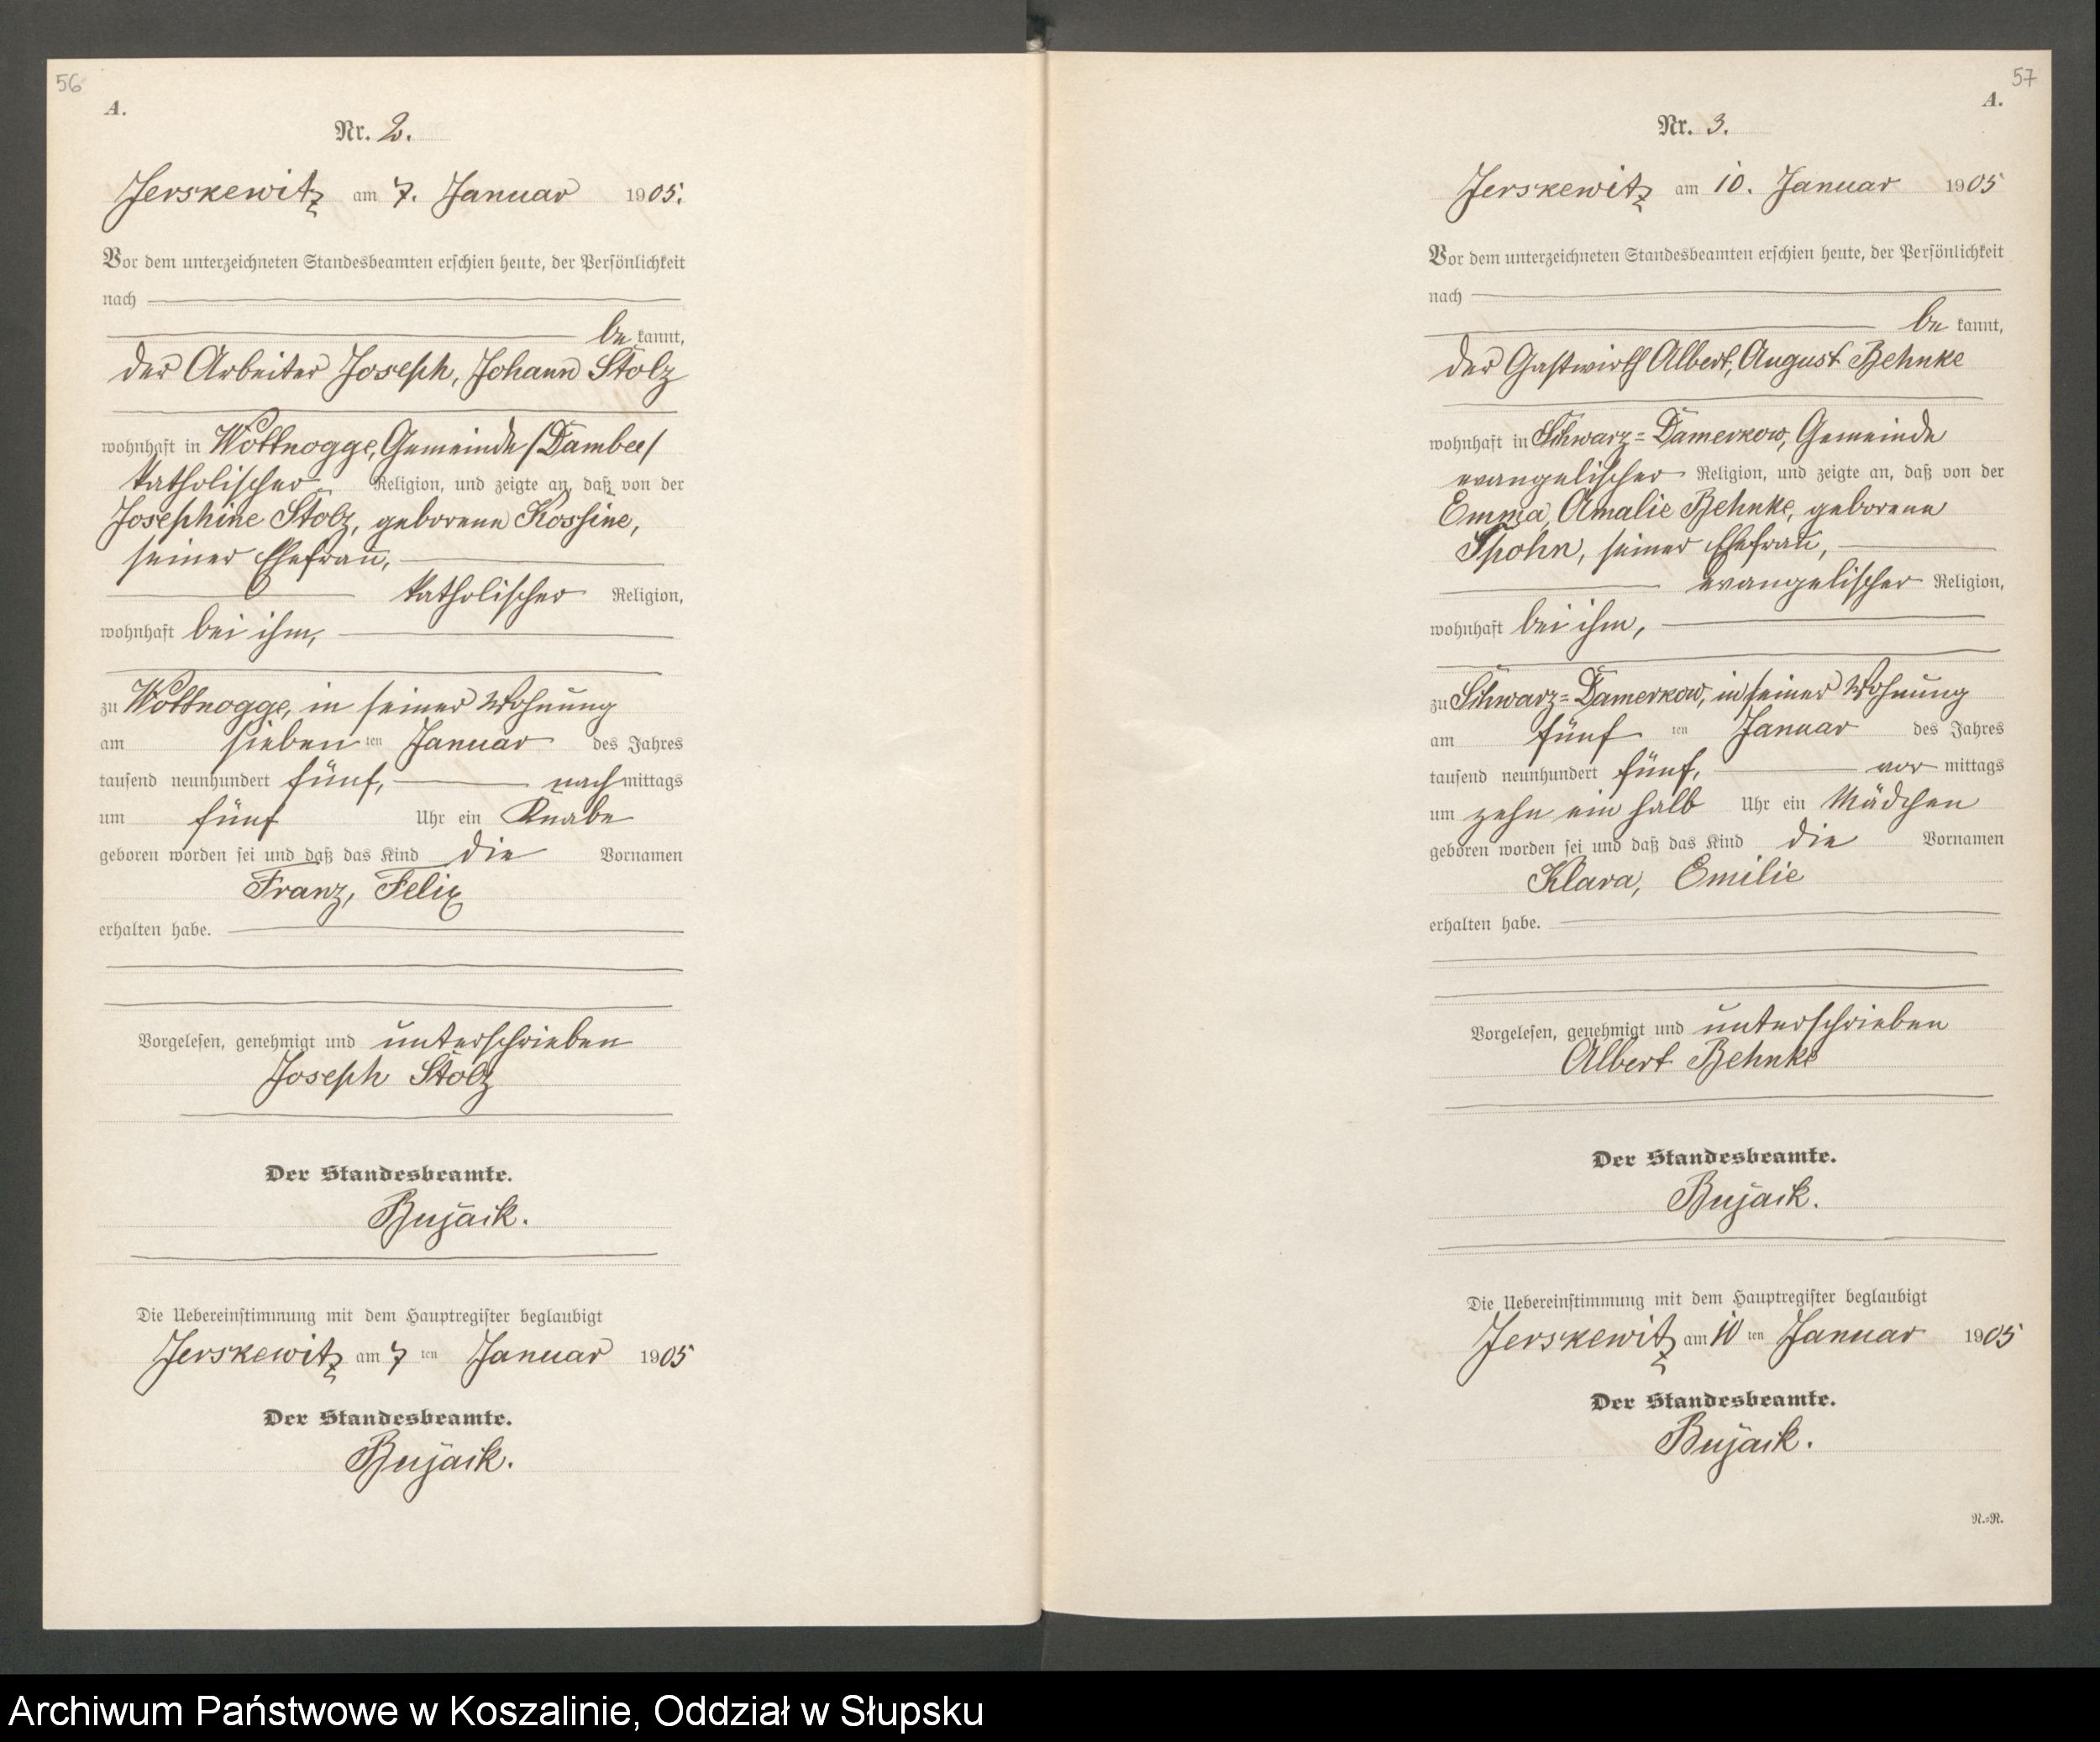 56
A.
Nr. 2.
Jerskewitz am 7. Januar 1905.
Vor dem unterzeichneten Standesbeamten erschien heute, der Persönlichkeit
nach
be kannt,
der Arbeiter Joseph, Johann Stolz
wohnhaft in Wottnogge, Gemeinde /Dambee/
katholischer Religion, und zeigte an, daß von der
Josephine Stolz, geborene Kossine,
seiner Ehefrau,
katholischer Religion,
wohnhaft bei ihm,
zu Wottnogge, in seiner Wohnung
am sieben ten Januar des Jahres
tausend neunhundert fünf, nach mittags
um fünf Uhr ein Knabe
geboren worden sei und daß das Kind die Vornamen
Franz, Felix
erhalten habe.
Vorgelesen, genehmigt und unterschrieben
Joseph Stolz
Der Standesbeamte.
Bujack.
Die Uebereinstimmung mit dem Hauptregister beglaubigt
Jerskewitz am 7 ten Januar 1905
Der Standesbeamte.
Bujack.
57
A.
Nr. 3.
Jerskewitz am 10. Januar 1905
Vor dem unterzeichneten Standesbeamten erschien heute, der Persönlichkeit
nach
be kannt,
der Gastwirth Albert, August Behnke
wohnhaft in Schwarz=Damerkow, Gemeinde
evangelischer Religion, und zeigte an, daß von der
Emma, Amalie Behnke, geborene
Spohn, seiner Ehefrau,
evangelischer Religion,
wohnhaft bei ihm,
zu Schwarz=Damerkow, in seiner Wohnung
am fünf ten Januar des Jahres
tausend neunhundert fünf, vor mittags
um zehn ein halb Uhr ein Mädchen
geboren worden sei und daß das Kind die Vornamen
Klara, Emilie
erhalten habe.
Vorgelesen, genehmigt und unterschrieben
Albert Behnke
Der Standesbeamte.
Bujack.
Die Uebereinstimmung mit dem Hauptregister beglaubigt
Jerskewitz am 10 ten Januar 1905
Der Standesbeamte.
Bujack.
R.=R.
Archiwum Państwowe w Koszalinie, Oddział w Słupsku